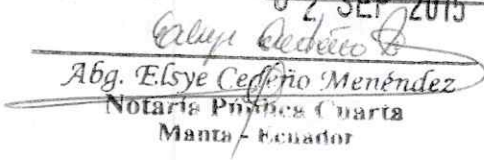 02 SEP 2015
Abg. Elsye Cedeño Menéndez
Notaría Pública Cuarta
Manta - Ecuador